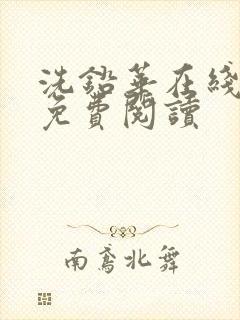 洗鉛華在綫
免費閱讀
南鳶北舞